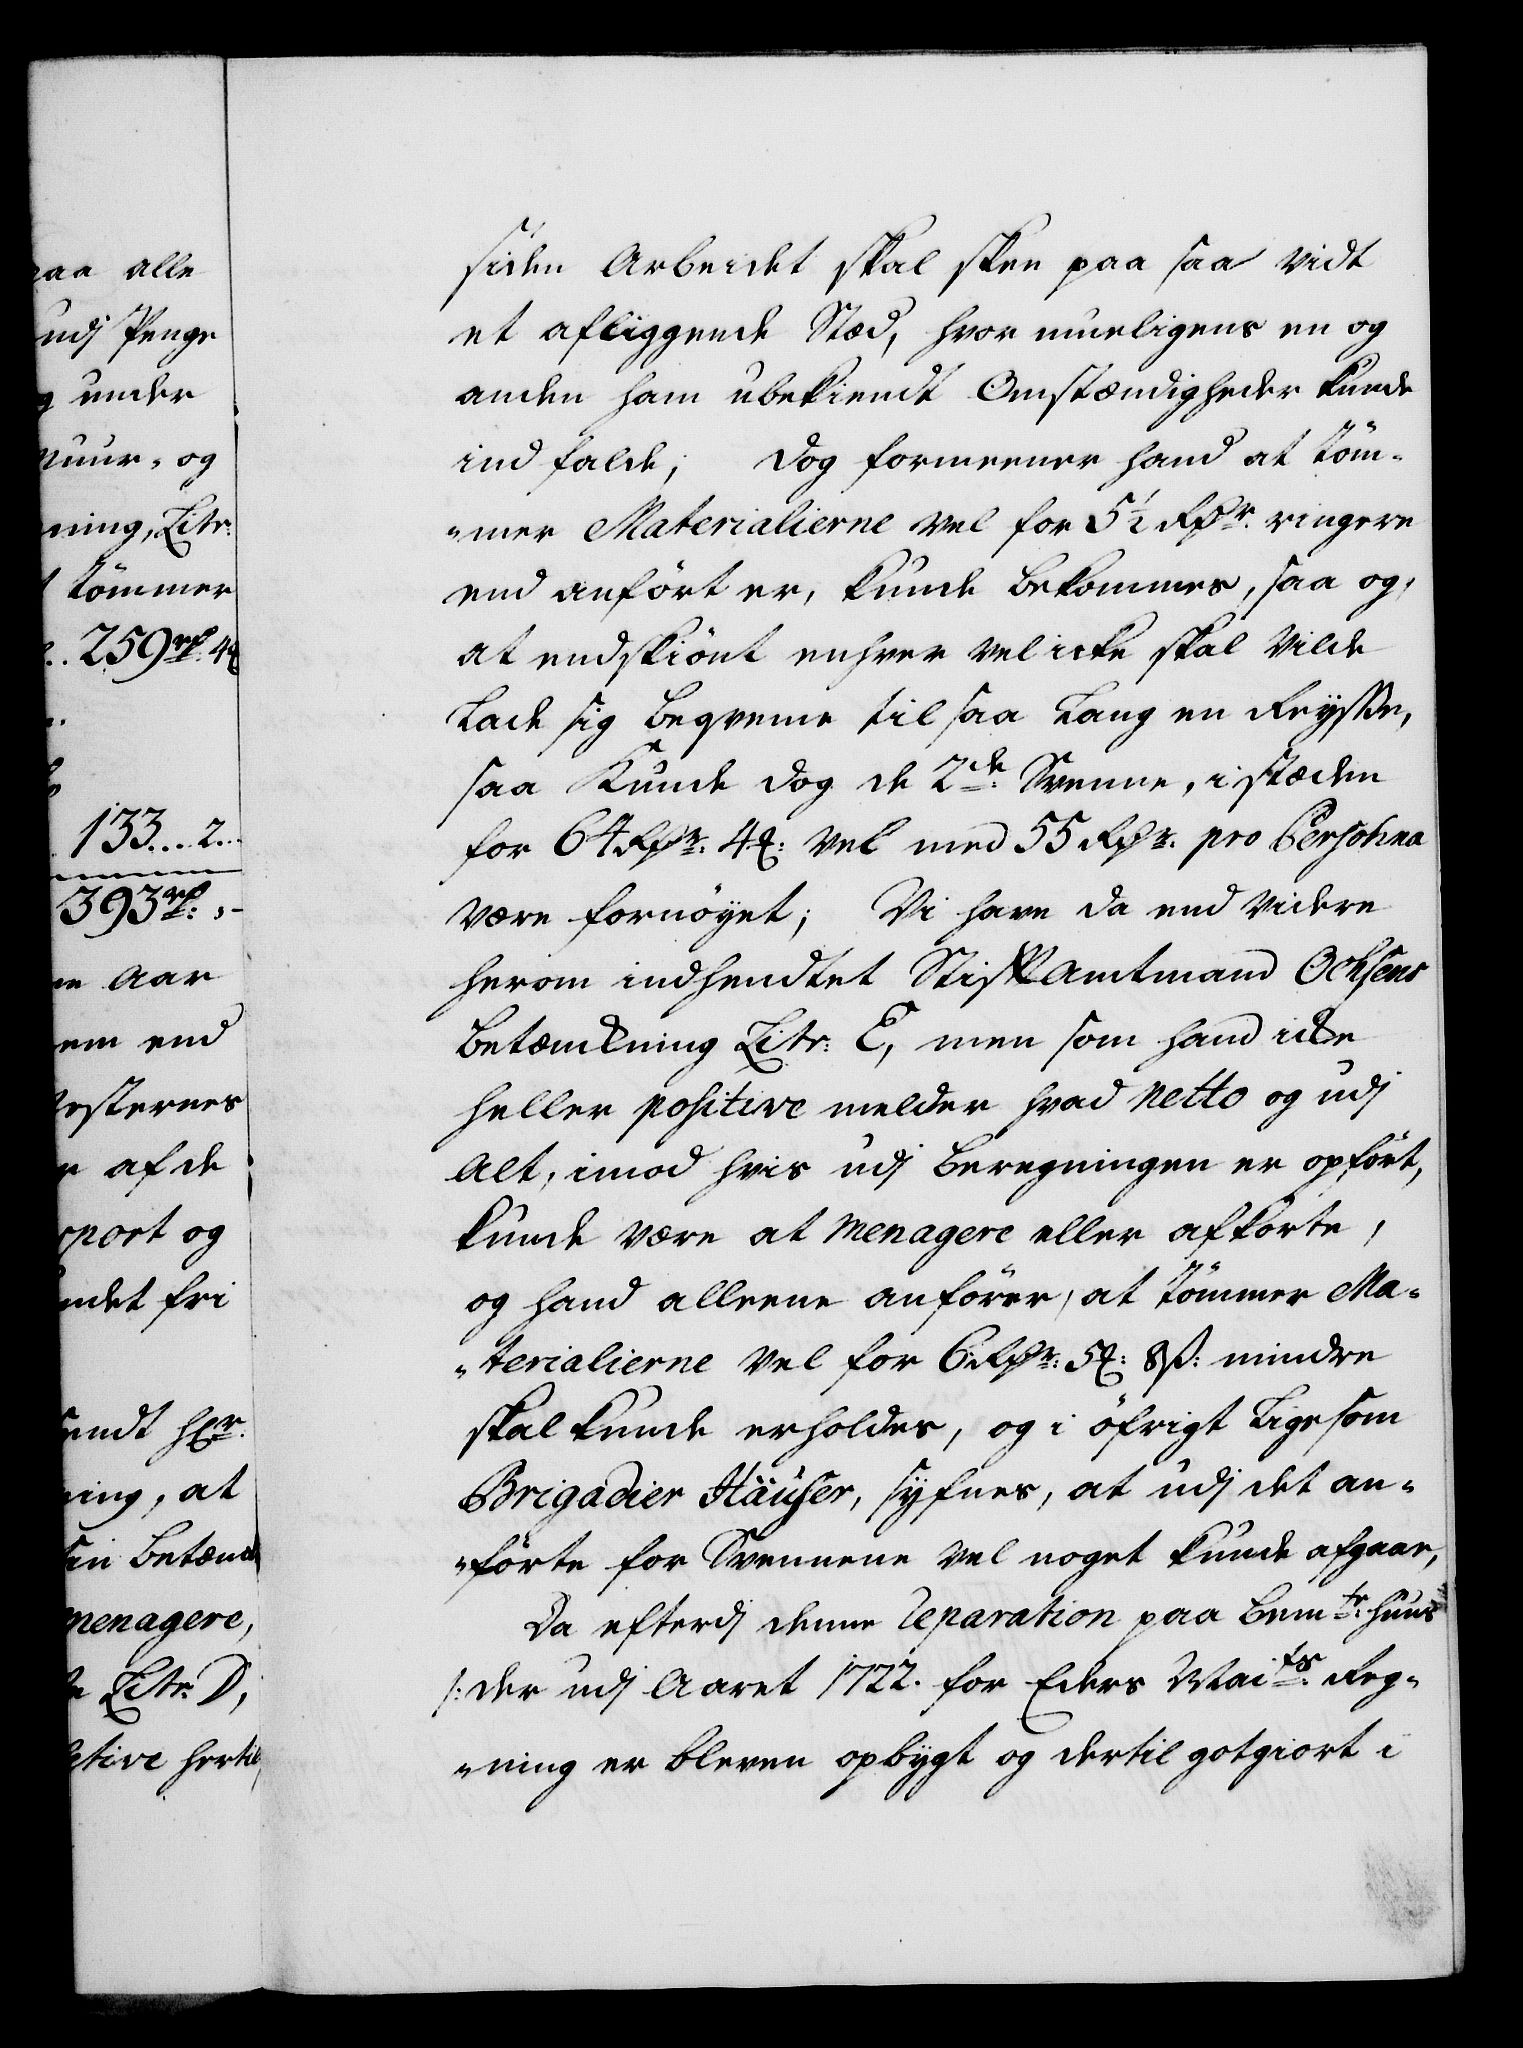 paa alle
udj Penge
og under
Muur- og
ning, Litr:
tömmer
259 rdr. 4
133...2...
393 rdr:,-
aar
em end
Mesternes
af de
port og
det fri
sendt hr.
ning, at
sin Betænk
menagere,
Litr. D,
sitive hertil,
siden Arbeidet skal skee paa saa vidt
et afliggende Stæd, hvor mueligens en og
anden ham ubekiendt Omstændigheder kunde
ind falde; dog formeener hand at töm-
-mer Materialierne vel for 5½ Rdr. ringere
end anfört er, kunde bekommes, saa og,
at endskiönt enhver vel icke skal vilde
lade sig beqveme til saa lang en Reysse,
saa kunde dog de 2de Svenne, i stæden
for 64 Rdr. 4 mk: vel med 55 Rdr. pro Persohna
være fornöyet; Vi have da end videre
herom indhendtet Stiftamtmand Ochsens
Betænckning Litr: E, men som hand icke
heller positive melder hvad netto og udj
alt, imod hvis udj Beregningen er opfört,
kunde være at menagere eller afkorte,
og hand alleene anförer, at tömmer Ma-
-terialierne vel for 6 Rdr: 5 mk: 8 ß: mindre
skal kunde erholdes, og i öfrigt ligesom
Brigadier Häuser, syfnes, at udj det an-
-förte for Svennene vel noget kunde afgaae,
Da efterdj denne Reparation paa bemte: huus
/: der udj Aaret 1722. for Eders Maits: Reg-
-ning er bleven opbygt og dertil gotgiort i